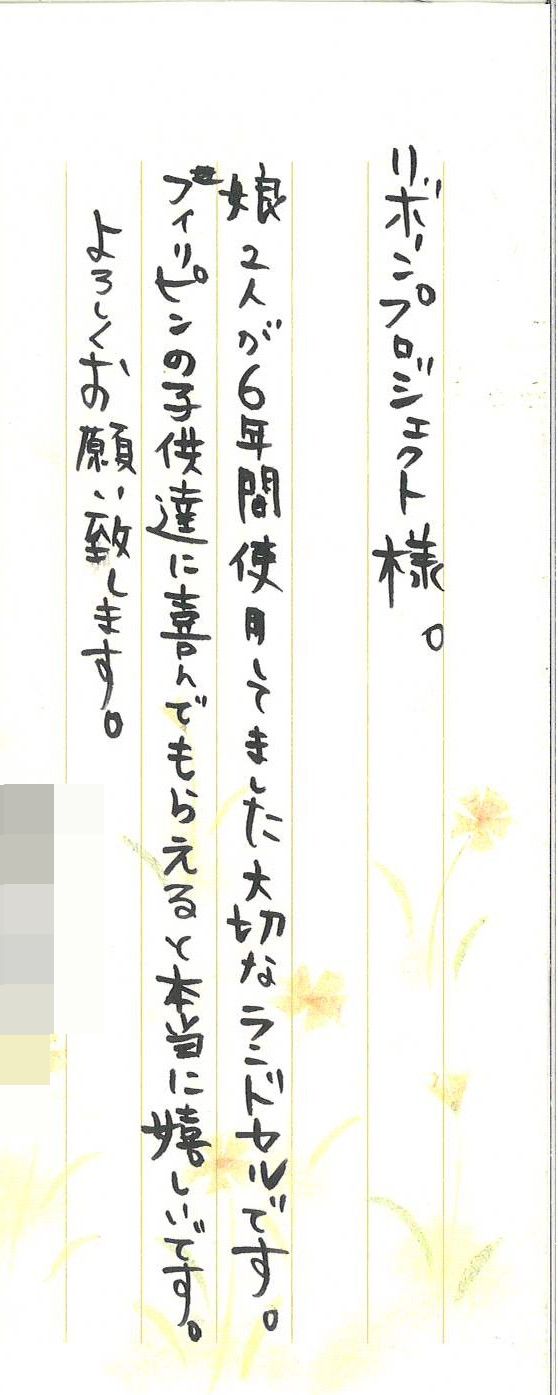 リボーンプロジェクト様。
娘2人が6年間使用してました大切なランドセルです。
フィリピンの子供達に喜んでもらえると本当に嬉しいです。
よろしくお願い致します。